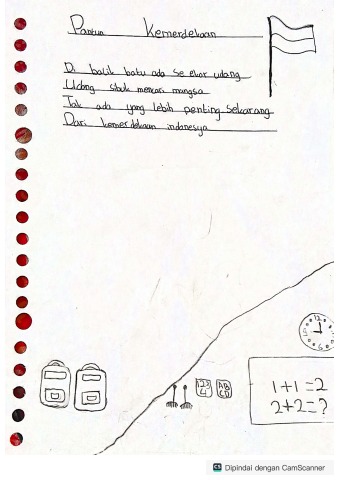 Pantun Kemerdekaan
Di balik batu ada se ekor udang
Udang sibuk mencari mangsa
Tak ada yang lebih penting sekarang
Dari kemerdekaan indonesya
12
3
6
9
123
4
AB
CD
1+1=2
2+2=?
CS Dipindai dengan CamScanner